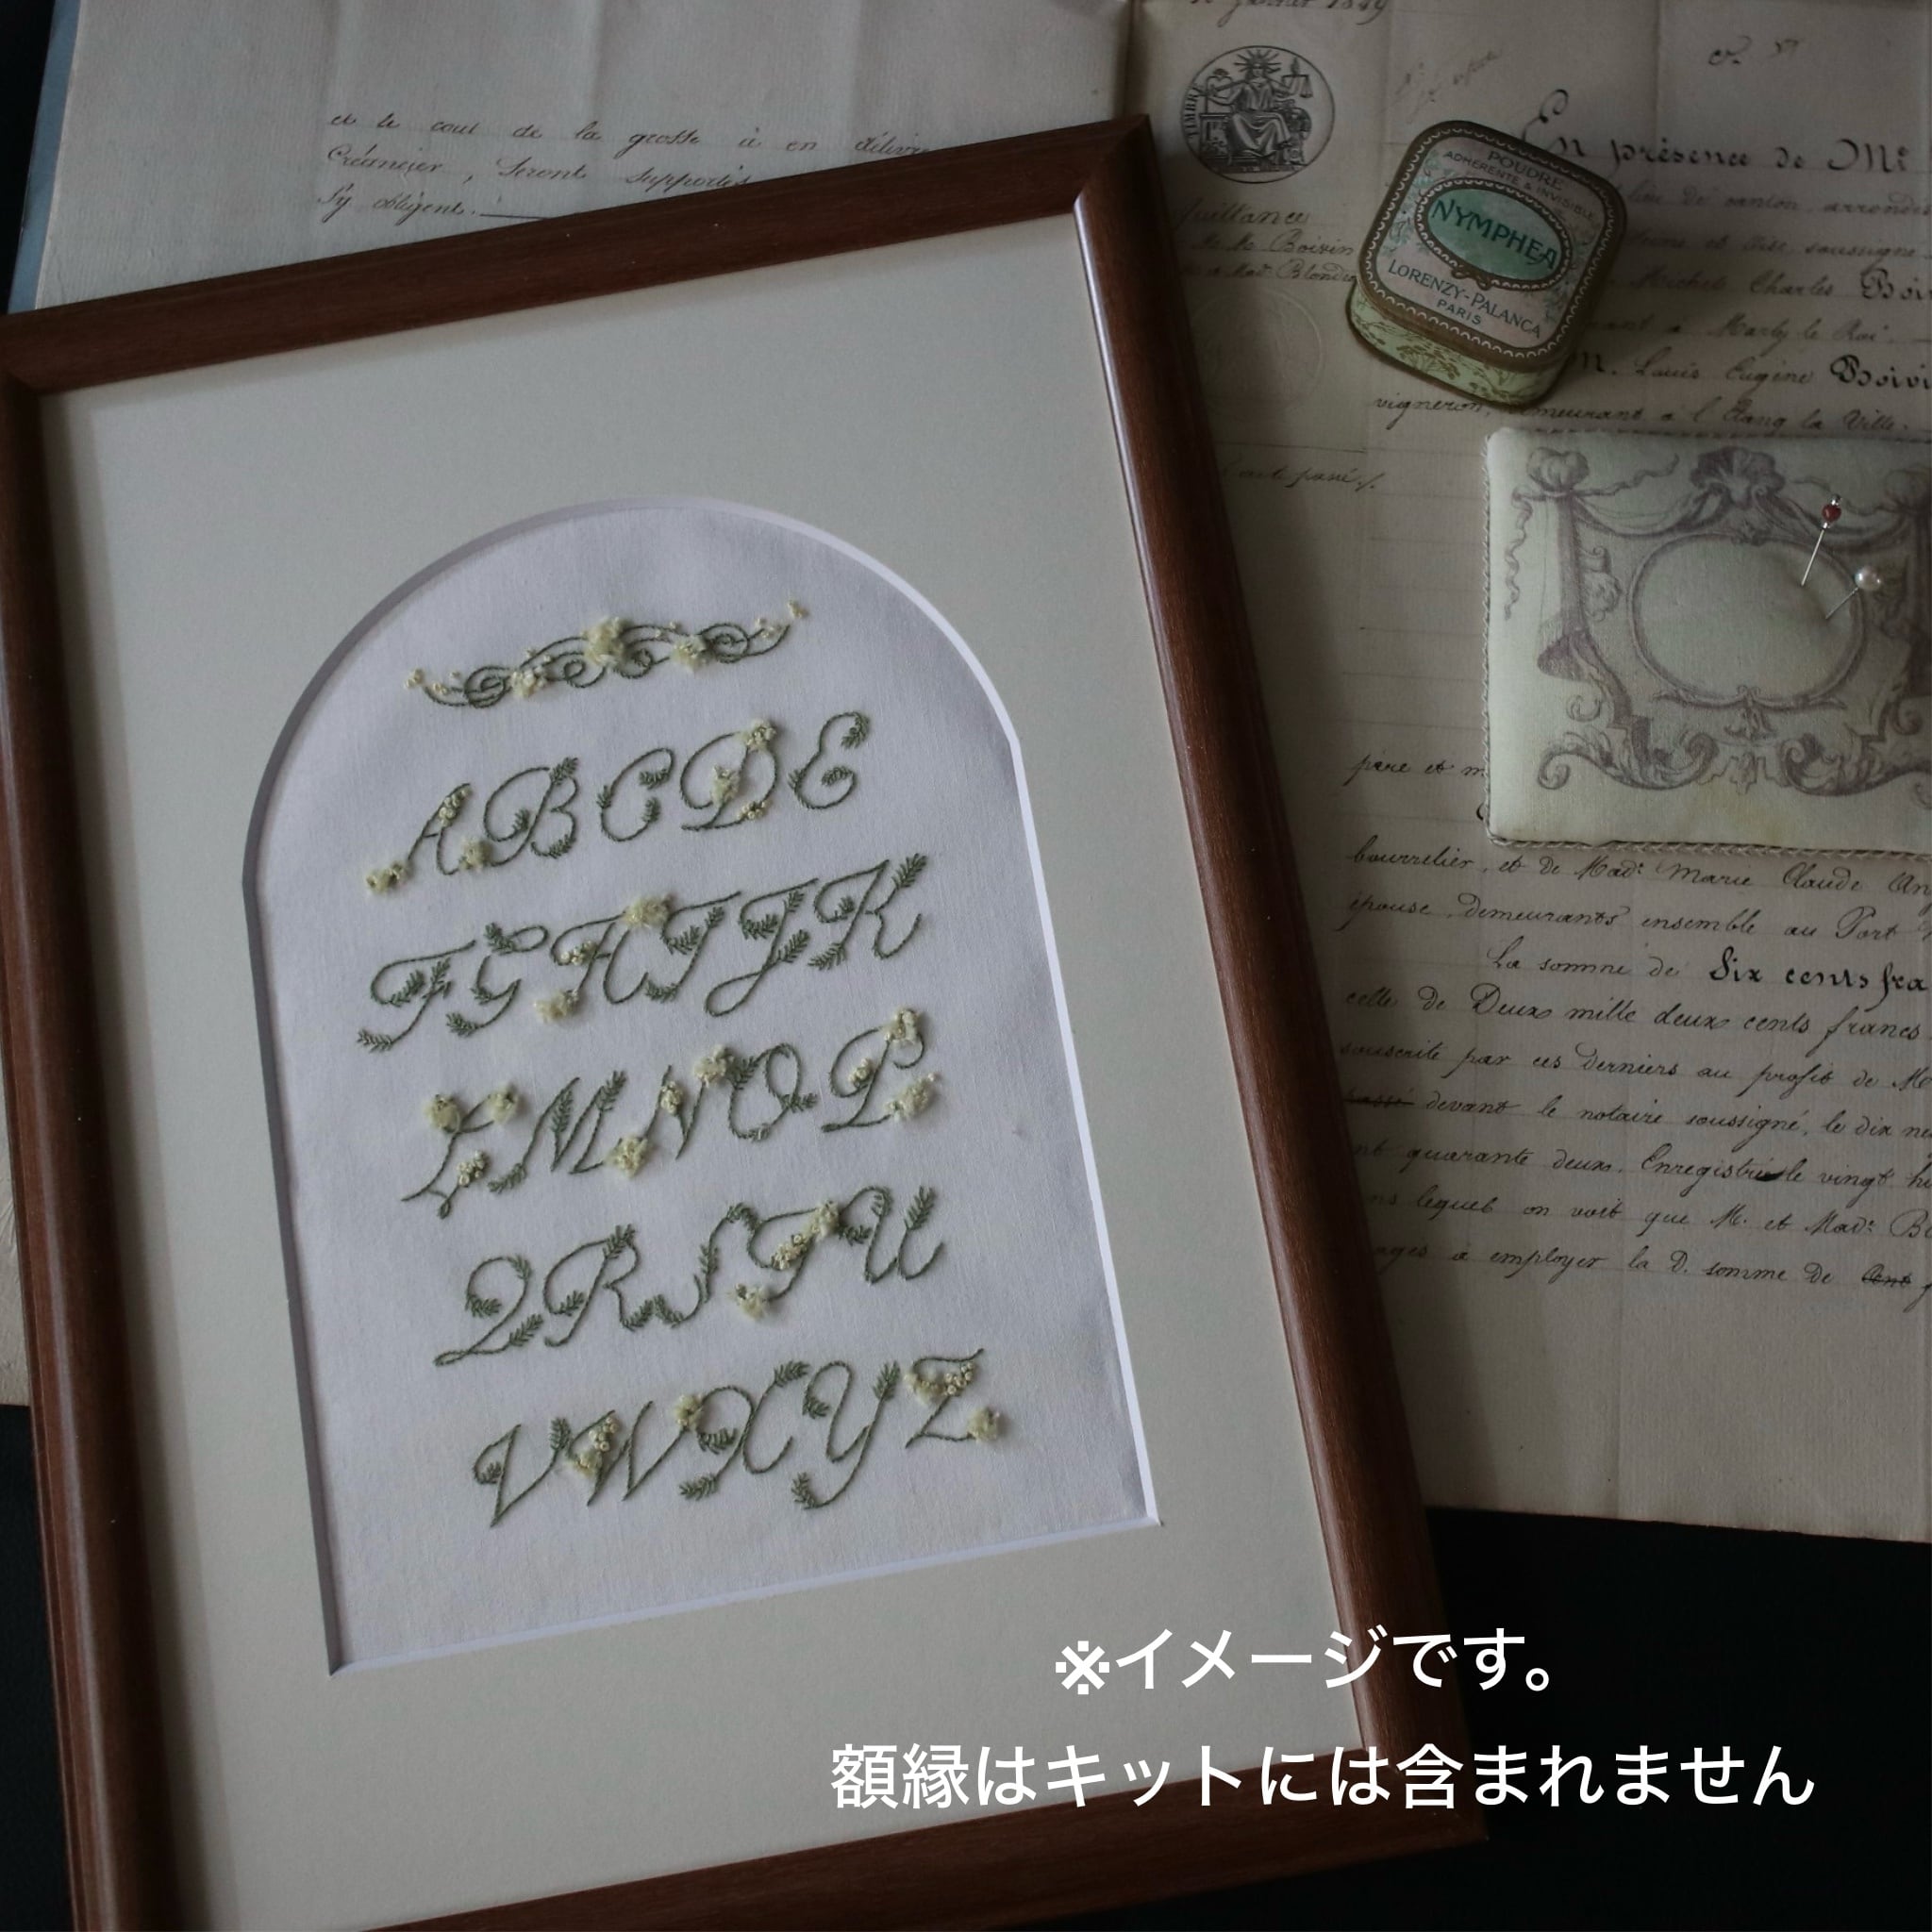 et le cout de la grosse à en délivrer
Créancier, Seront supportés
s'y obligent.
TIMBRE
En présence de Me
POUDRE
ADHERENTE & INVISIBLE
NYMPHEA
LORENZY-PALANCA
PARIS
de canton, arrondis
soussigné
Michel Charles Boi
à Marly le Roi
M. Louis Eugène Boivi
vigneron, demeurant à l'Etang la Ville.
père et m
bourrelier, et de Made Marie Claude An
épouse, demeurants ensemble au Port
La somme de Six cents fra
celle de Deux mille deux cents francs
souscrite par ces derniers au profit de M
devant le notaire soussigné, le dix ne
nt quarante deux. Enregistrée le vingt hu
ns lequel on voit que M. et Made Bo
à employer la D. somme de
A B C D E
F G H I J K
L M N O P
Q R S T U
V W X Y Z
※イメージです。
額縁はキットには含まれません